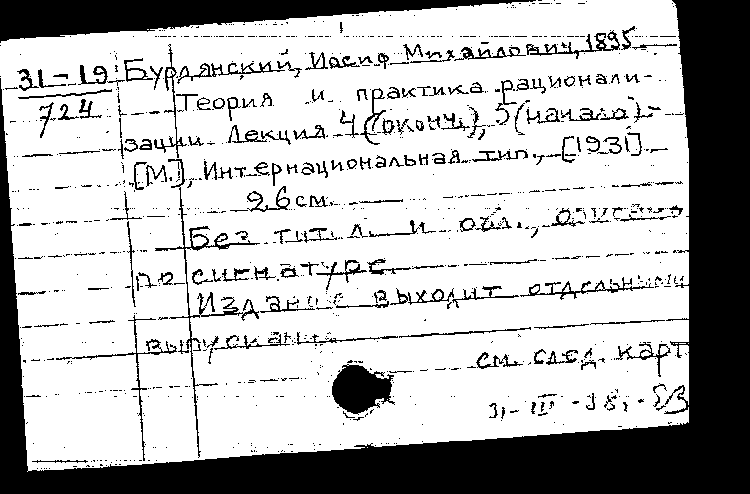 31-19 Бурдянский, Иосиф Михайлович, 1895.
724 Теория и практика рационали-
зации. Лекция 4 (оконч.), 5 (начало).-
[М.], Интернациональная тип., [1931].
26 см.
Без тит. л. и обл., описано
по сигнатуре.
Издание выходит отдельными
выпусками.
см. след. карт